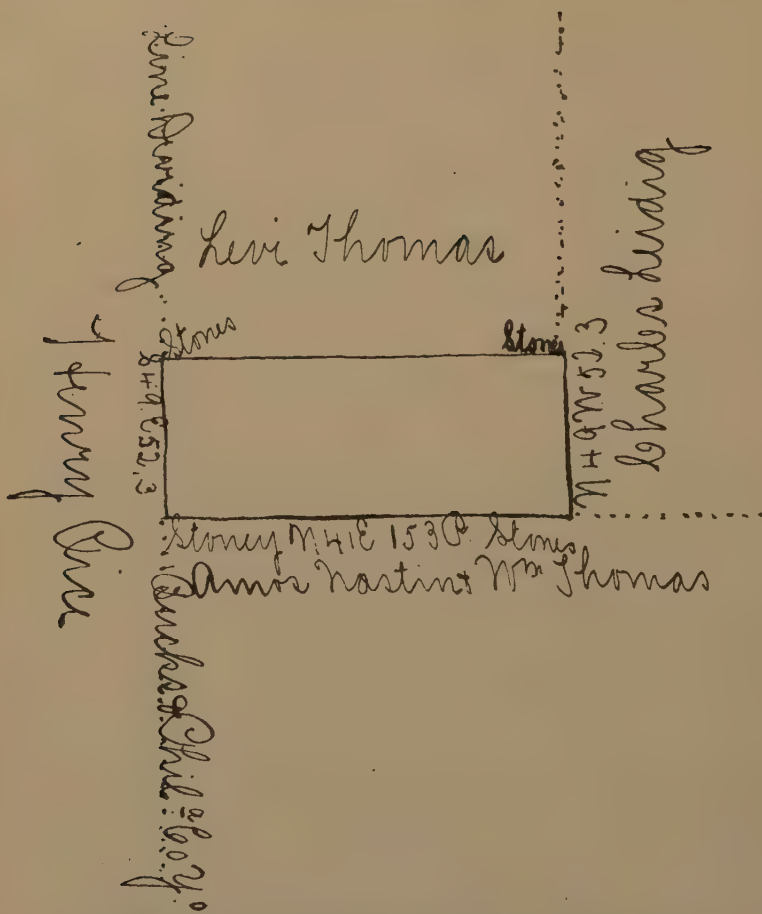 Line Dividing
Levi Thomas
Charles Leidig
Stones
Stones
S49.E52.3
N49W52.3
Henry Rice
Stoney N41E 153P. Stones
Amos Nastint Wm Thomas
Bucks & Phila. Coy.